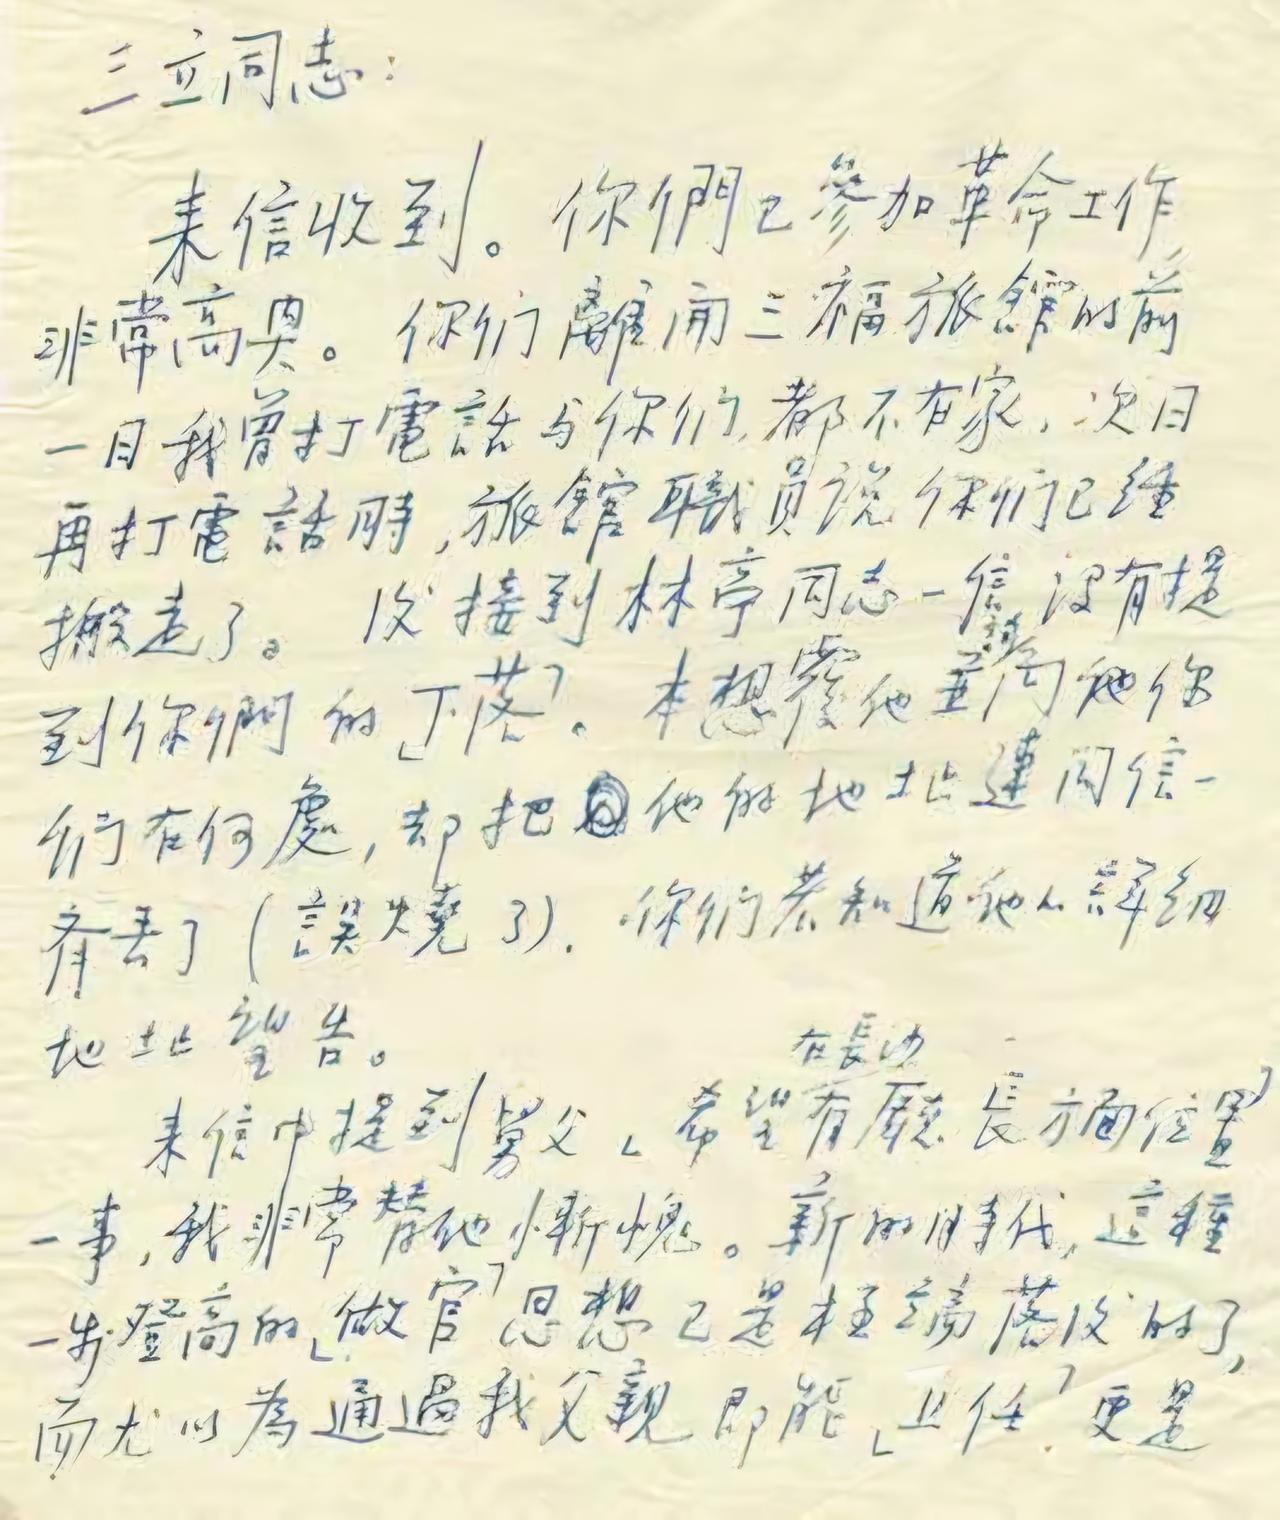 三立同志：
来信收到。你們已參加革命工作，
非常高興。你们離開三福旅館的前
一日我曾打電話与你们，都不在家，次日
再打電話時，旅館職員说你们已經
搬走了。後接到林亭同志一信，沒有提
到你們的「下落」。本想覆他並詢问他你
们在何處，却把他的地址連同信一
齊丟了（誤燒了）。你们若知道他的詳細
地址望告。
在長沙
来信中提到舅父「希望有廳長方面位置」
一事，我非常替他慚愧。新的時代，這種
一步登高的「做官」思想已是極端落後的了，
而尤以為通過我父親即能「上任」更是